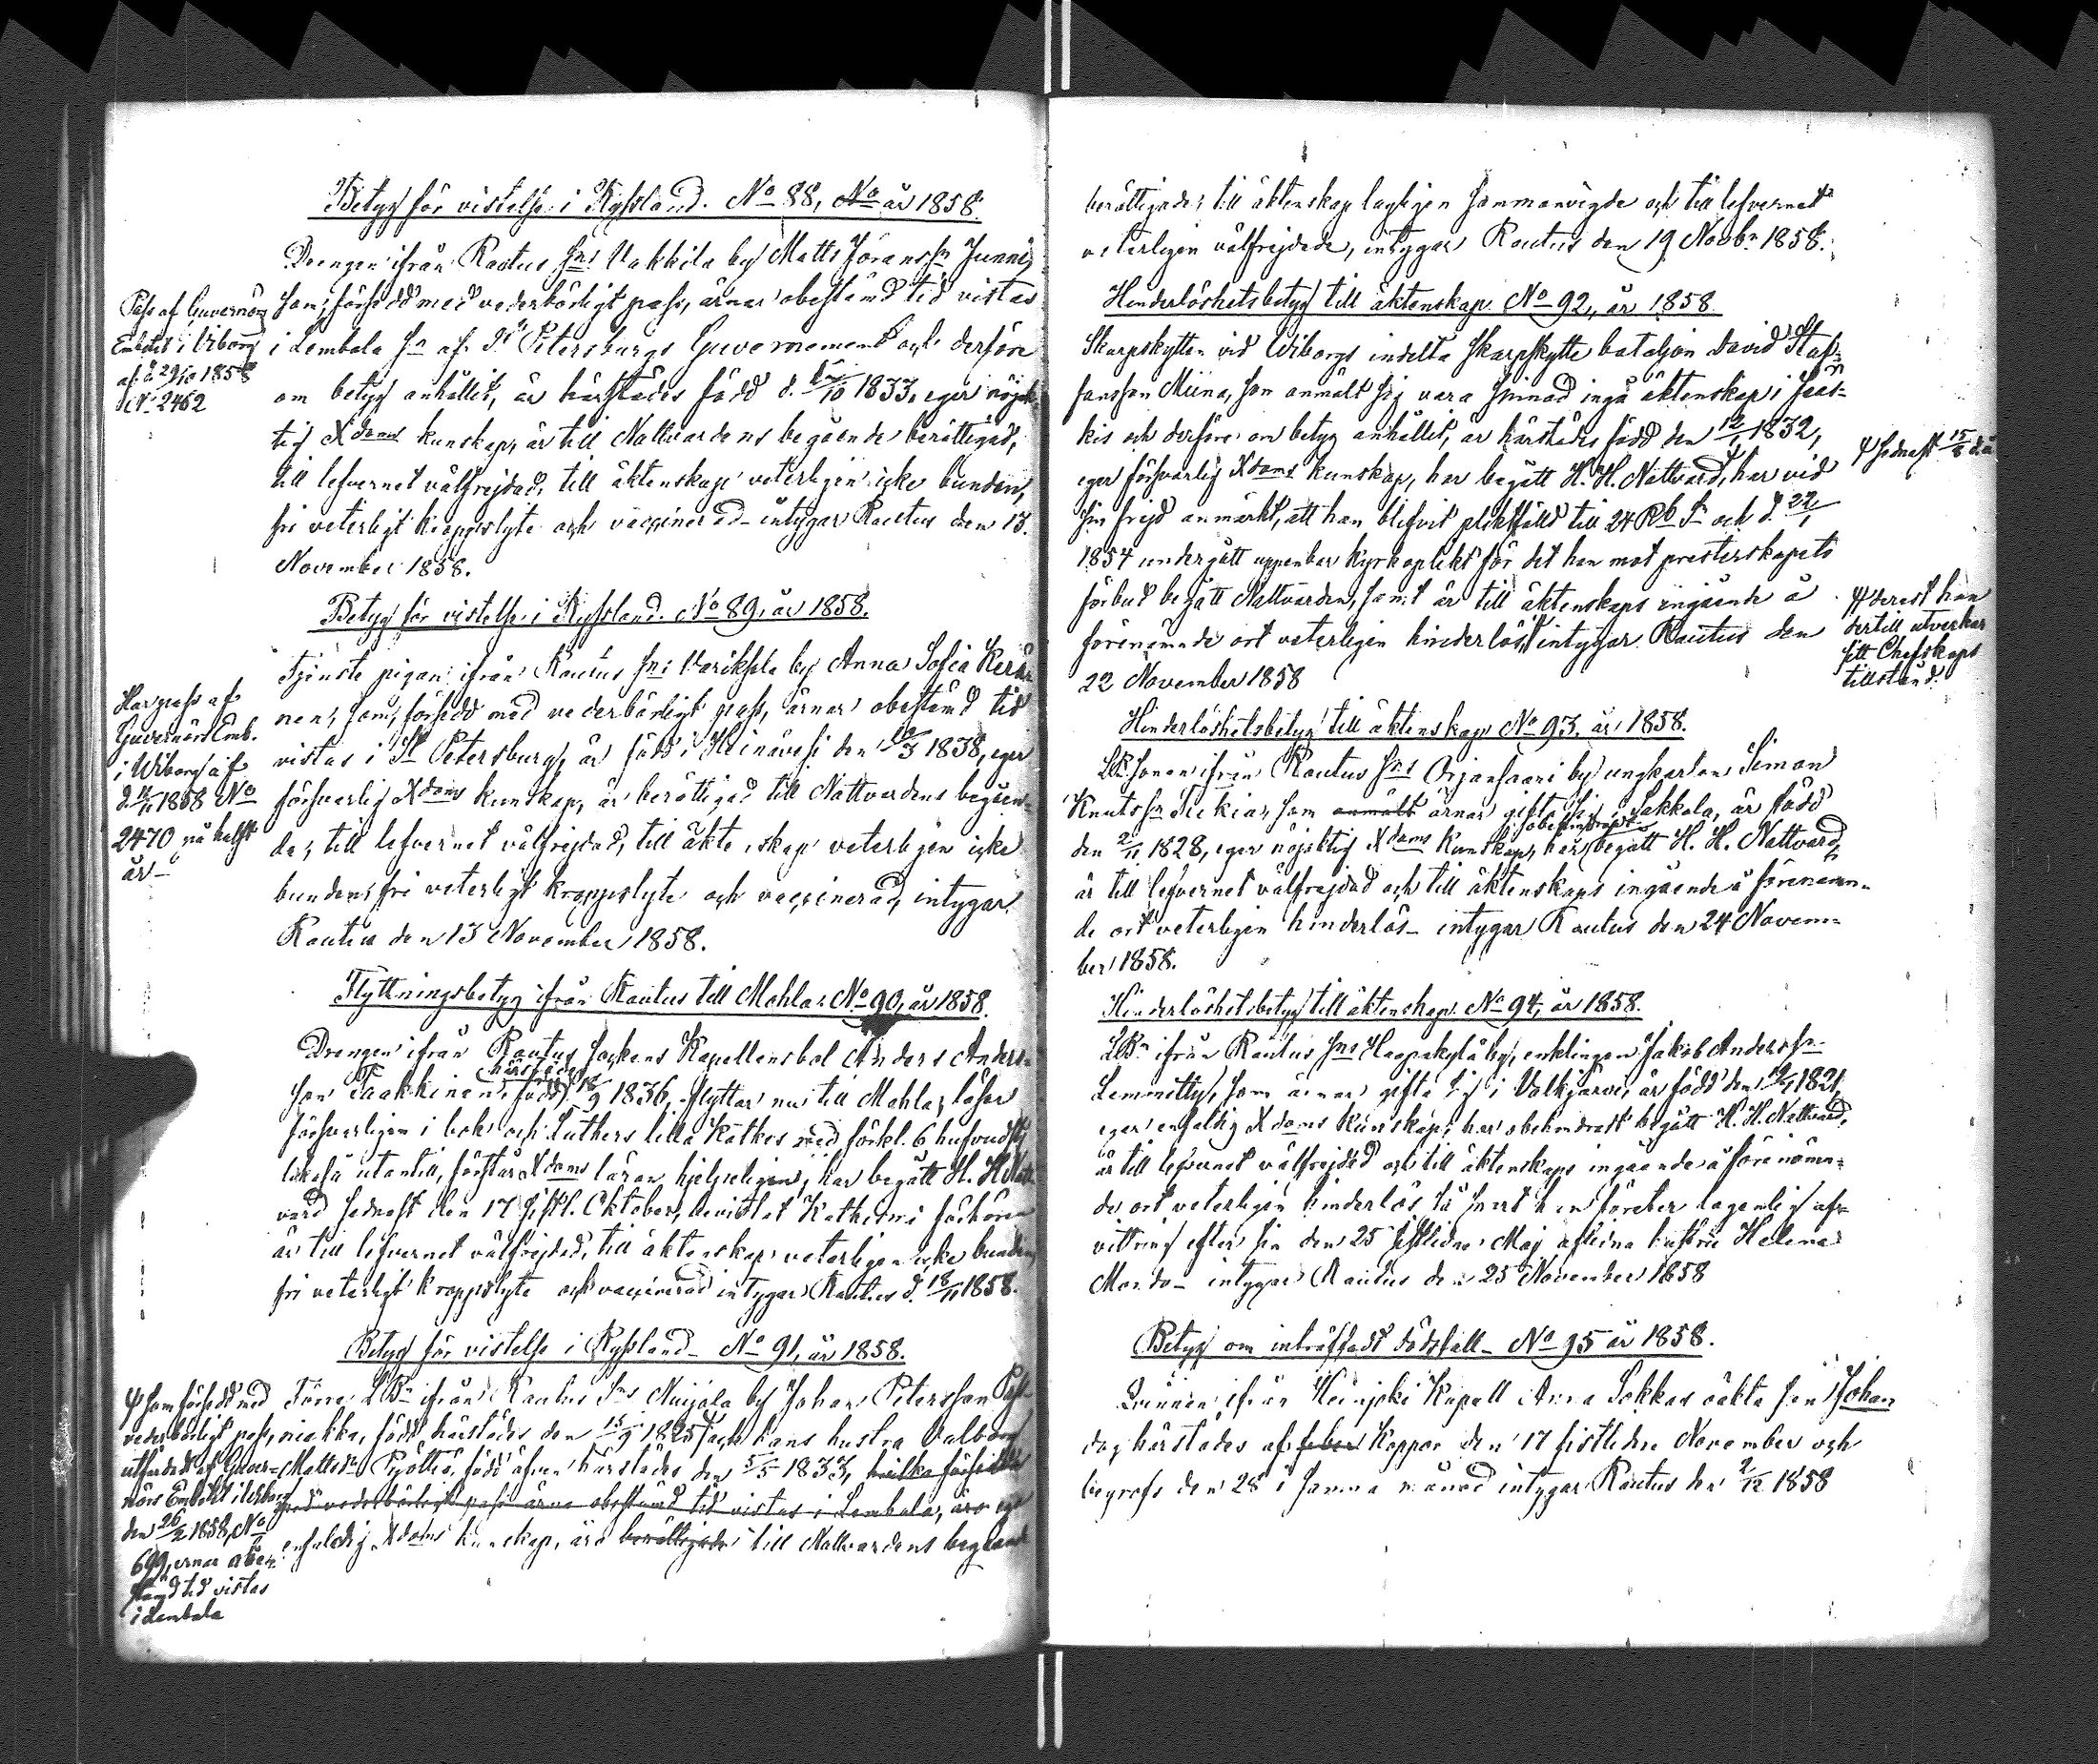 Betyg för vistelse i Ryssland. No 88, No år 1858.
Drengen ifrån Rautus Sns Vakkila by Matts Göransson Junni,
som, försedd med vederbörligt pass, ärnar obestämd tid vistas
i Lembala Sn af St Petersburgs Guvernement och derföre
om betyg anhållit, är härstädes född d. /10 1833, eger nöjak-
tig Xdoms kunskap, är till Nattvardens begående berättigad,
till lefvernet välfrejdad, till äktenskap veterligen icke bunden,
fri veterligt kroppslyte och vaccinerad intygar Rautus den 13.
November 1858.
Pass af Guvernörs
Embetet i Viborg
af d. 29/10 1858
No 2462
Betyg för vistelse i Ryssland. No 89, år 1858.
Tjenste pigan ifrån Rautus Sns Variksela by Anna Sofia Kerä-
nen, som, försedd med vederbörligt pass, ärnar obestämd tid
vistas i St Petersburg, är född i Heinävesi den /3 1838, eger
försvarlig Xdoms kunskap, är berättigad till Nattvardens begåen-
de, till lefvernet välfrejdad, till äktenskap veterligen icke
bunden, fri veterligt kroppslyte och vaccinerad, intygar
Rautus den 13 November 1858.
Har pass af
Guvernörs Emb.
i Wiborg af
d. /11 1858 No
2470 på halft
år
Flyttningsbetyg ifrån Rautus till Mohla. No 90, år 1858.
Drengen ifrån Rautus Sockens Kapellensbol Anders Anders-
son Taakkinen, född härstädes 18/9 1836, flyttar nu till Mohla, läser
försvarligen i bok och Luthers lilla Katkes med förkl. 6 hufvudst.
likaså utantill, förstår Xdoms läran hjelpeligen, har begått H. H. Natt-
vard sednast den 17 sistl. Oktober, bevistat Kathismi förhören
är till lefvernet välfrejdad, till äktenskap veterligen icke bunden,
fri veterligt kroppslyte och vaccinerad intygar Rautus d. 18/11 1858.
Betyg för vistelse i Ryssland No 91, år 1858.
Förre LBn ifrån Rautus Sns Muijala by Johan Petersson
niakka, född härstädes den 15/9 1825 och hans hustru Valborg
Mattsdr Pyöttiö, född äfven härstädes den 5/5 1833, hvilka försedda
med vederbörligt pass ärna obestämd tid vistas i Lembala, äro ega
enfaldig Xdoms kunskap, äro berättigade till Nattvardens begående
som försedd med
vederbörligt pass,
utfärdadt af Guver-
nörs Embetet i Viborg
den 26/2 1858, No
699, ärnar obe-
stämd tid vistas
i Lembala
berättigade, till äktenskap lagligen sammanvigde och till lefvernet
veterligen välfrejdade, intygar Rautus den 19 Novbr 1858.
Hinderlöshetsbetyg till äktenskap No 92, år 1858.
Skarpskytten vid Wiborgs indelta Skarpskytte bataljon David Staf-
fansson Miina, som anmält sig vara sinnad ingå äktenskap i Jääs-
kis och derföre om betyg anhållit, är härstädes född den 12/1 1832,
eger försvarlig Xdoms kunskap, har begått H. H. Nattvard, har vid
sin frejd anmärkt, att han blifvit pliktfälld till 24 Rb Sr och d. 22/1
1854 undergått uppenbar kyrkoplikt för det han mot presterskapets
förbud begått Nattvarden, samt är till äktenskaps ingående å
förenämnde ort veterligen hinderlös intygar Rautus den
22 November 1858
sednast 15/8 d.å.
derest han
dertill utverkar
sitt Chefskaps
tillstånd.
Hinderlöshetsbetyg till äktenskap No 93, år 1858.
LBsonen ifrån Rautus Sns Orjansaari by ungkarlen Simon
Knutsson Kiekiä, som anmält ärnar gifta sig i Sakkola, är född
den 2/11 1828, eger nöjaktig Xdoms kunskap, har obehindradt begått H. H. Nattvard,
är till lefvernet välfrejdad och till äktenskaps ingående å förenämn-
de ort veterligen hinderlös intygar Rautus den 24 Novem-
ber 1858.
Hinderlöshetsbetyg till äktenskap No 94, år 1858.
LBn ifrån Rautus Sns Haapakylä by, enklingen Jakob Andersson
Lemmetty, som ärnar gifta sig i Valkjärvi, är född den /1 1821,
eger enfaldig Xdoms kunskap, har obehindradt begått H. H. Nattvard,
är till lefvernet välfrejdad och till äktenskaps ingående å förenämn-
de ort veterligen hinderlös så snart han företer lagenlig af-
vittring efter sin den 25 sistlidne Maj aflidna hustru Helena
intygar Rautus den 25 November 1858
Betyg om inträffadt dödsfall No 95 år 1858.
Qvinnan ifrån Heinjoki Kapell Anna Sokkas oäkta son Johan
dog härstädes af feber koppor den 17 sistlidne November och
begrofs den 28 i samma månad intygar Rautus den 2/12 1858